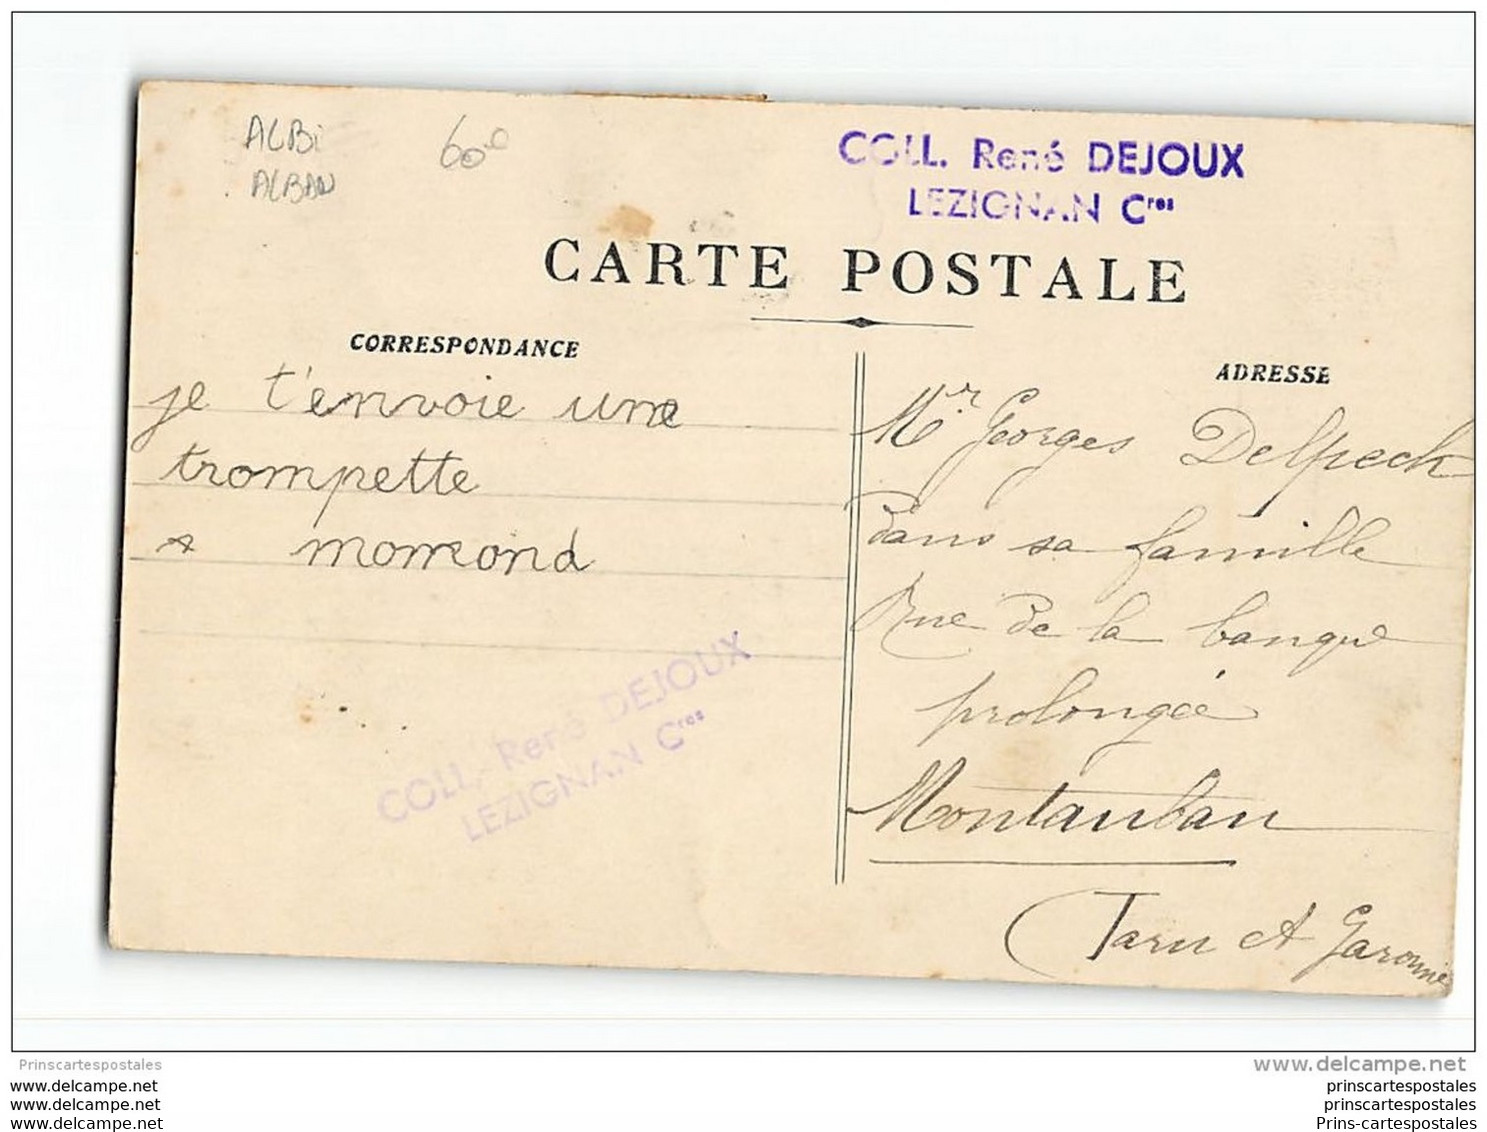 ALBi
ALBAN
60
COLL. René DEJOUX
LEZIGNAN Cres
CARTE POSTALE
CORRESPONDANCE
ADRESSE
je t'envoie une
trompette
momond
Mr Georges Delpech
Dans sa famille
Rue de la banque
prolongée
Montauban
Tarn et Garonne
COLL. René DEJOUX
LEZIGNAN Cres
Prinscartespostales
www.delcampe.net
www.delcampe.net
www.delcampe.net
www.delcampe.net
prinscartespostales
prinscartespostales
Prins-cartespostales